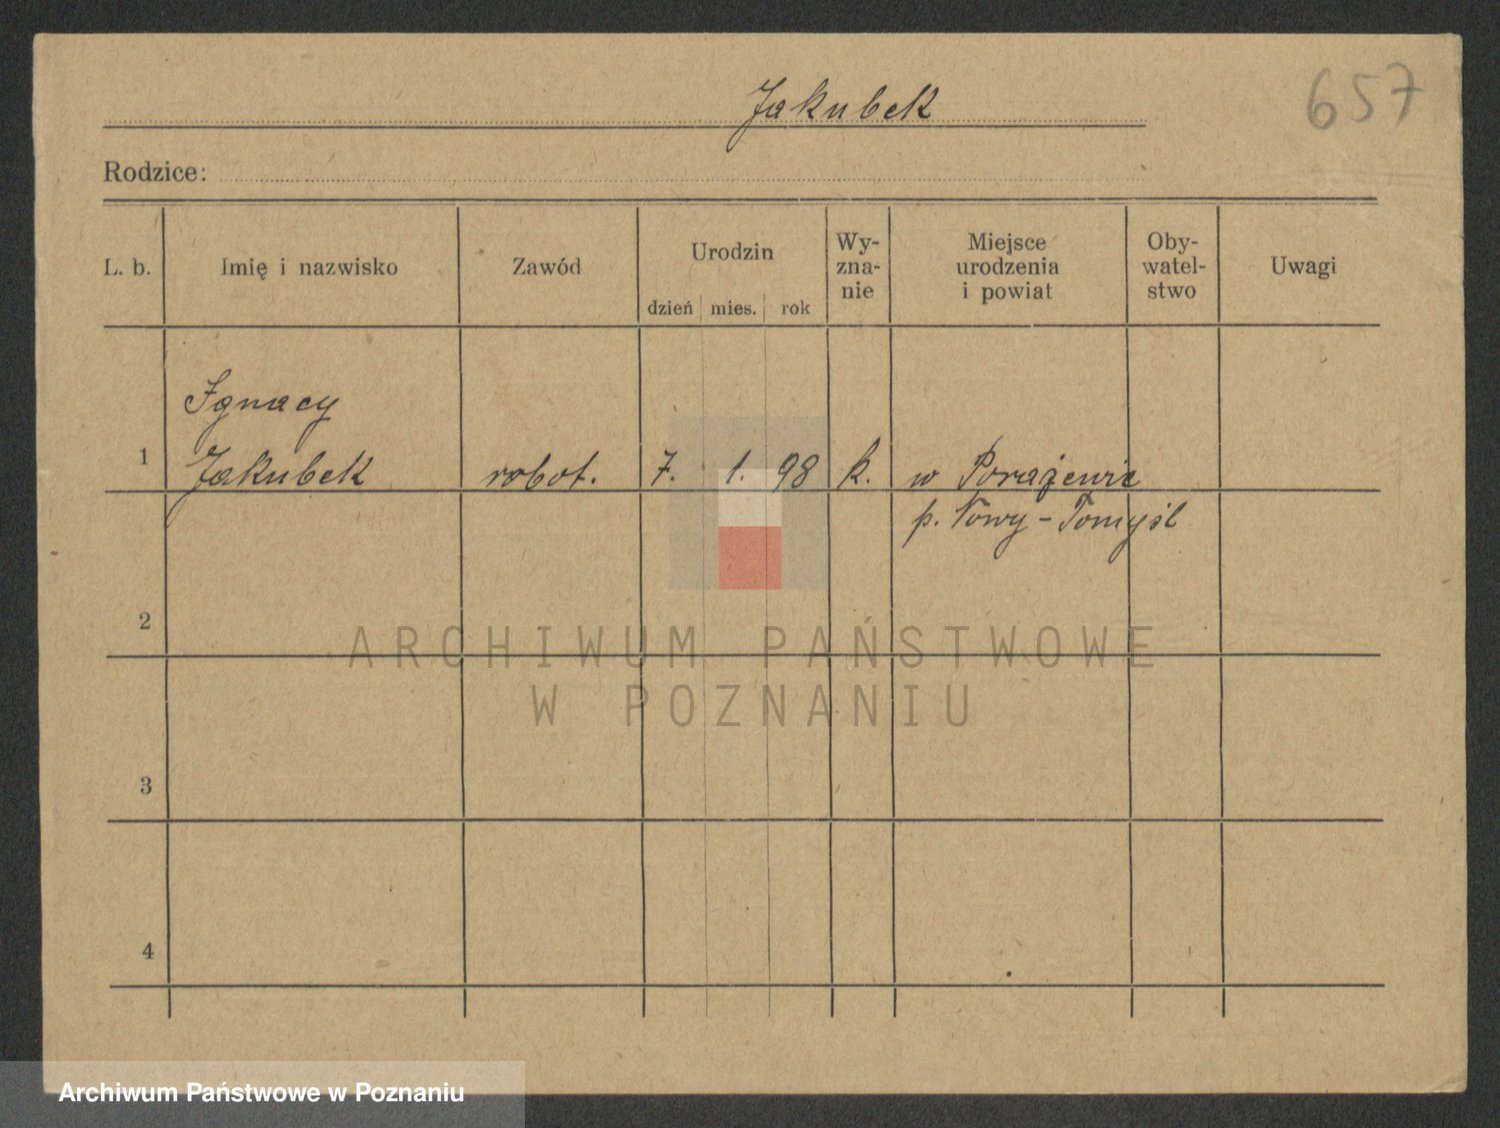 Jakubek
657
Rodzice:
L. b.
Imię i nazwisko
Zawód
Urodzin
dzień mies. rok
Wy-
zna-
nie
Miejsce
urodzenia
i powiat
Oby-
watel-
stwo
Uwagi
Ignacy
1 Jakubek robot. 7. 1. 98 k. w Porażewie
p. Nowy-Tomyśl
2
3
4
ARCHIWUM PAŃSTWOWE
W POZNANIU
Archiwum Państwowe w Poznaniu